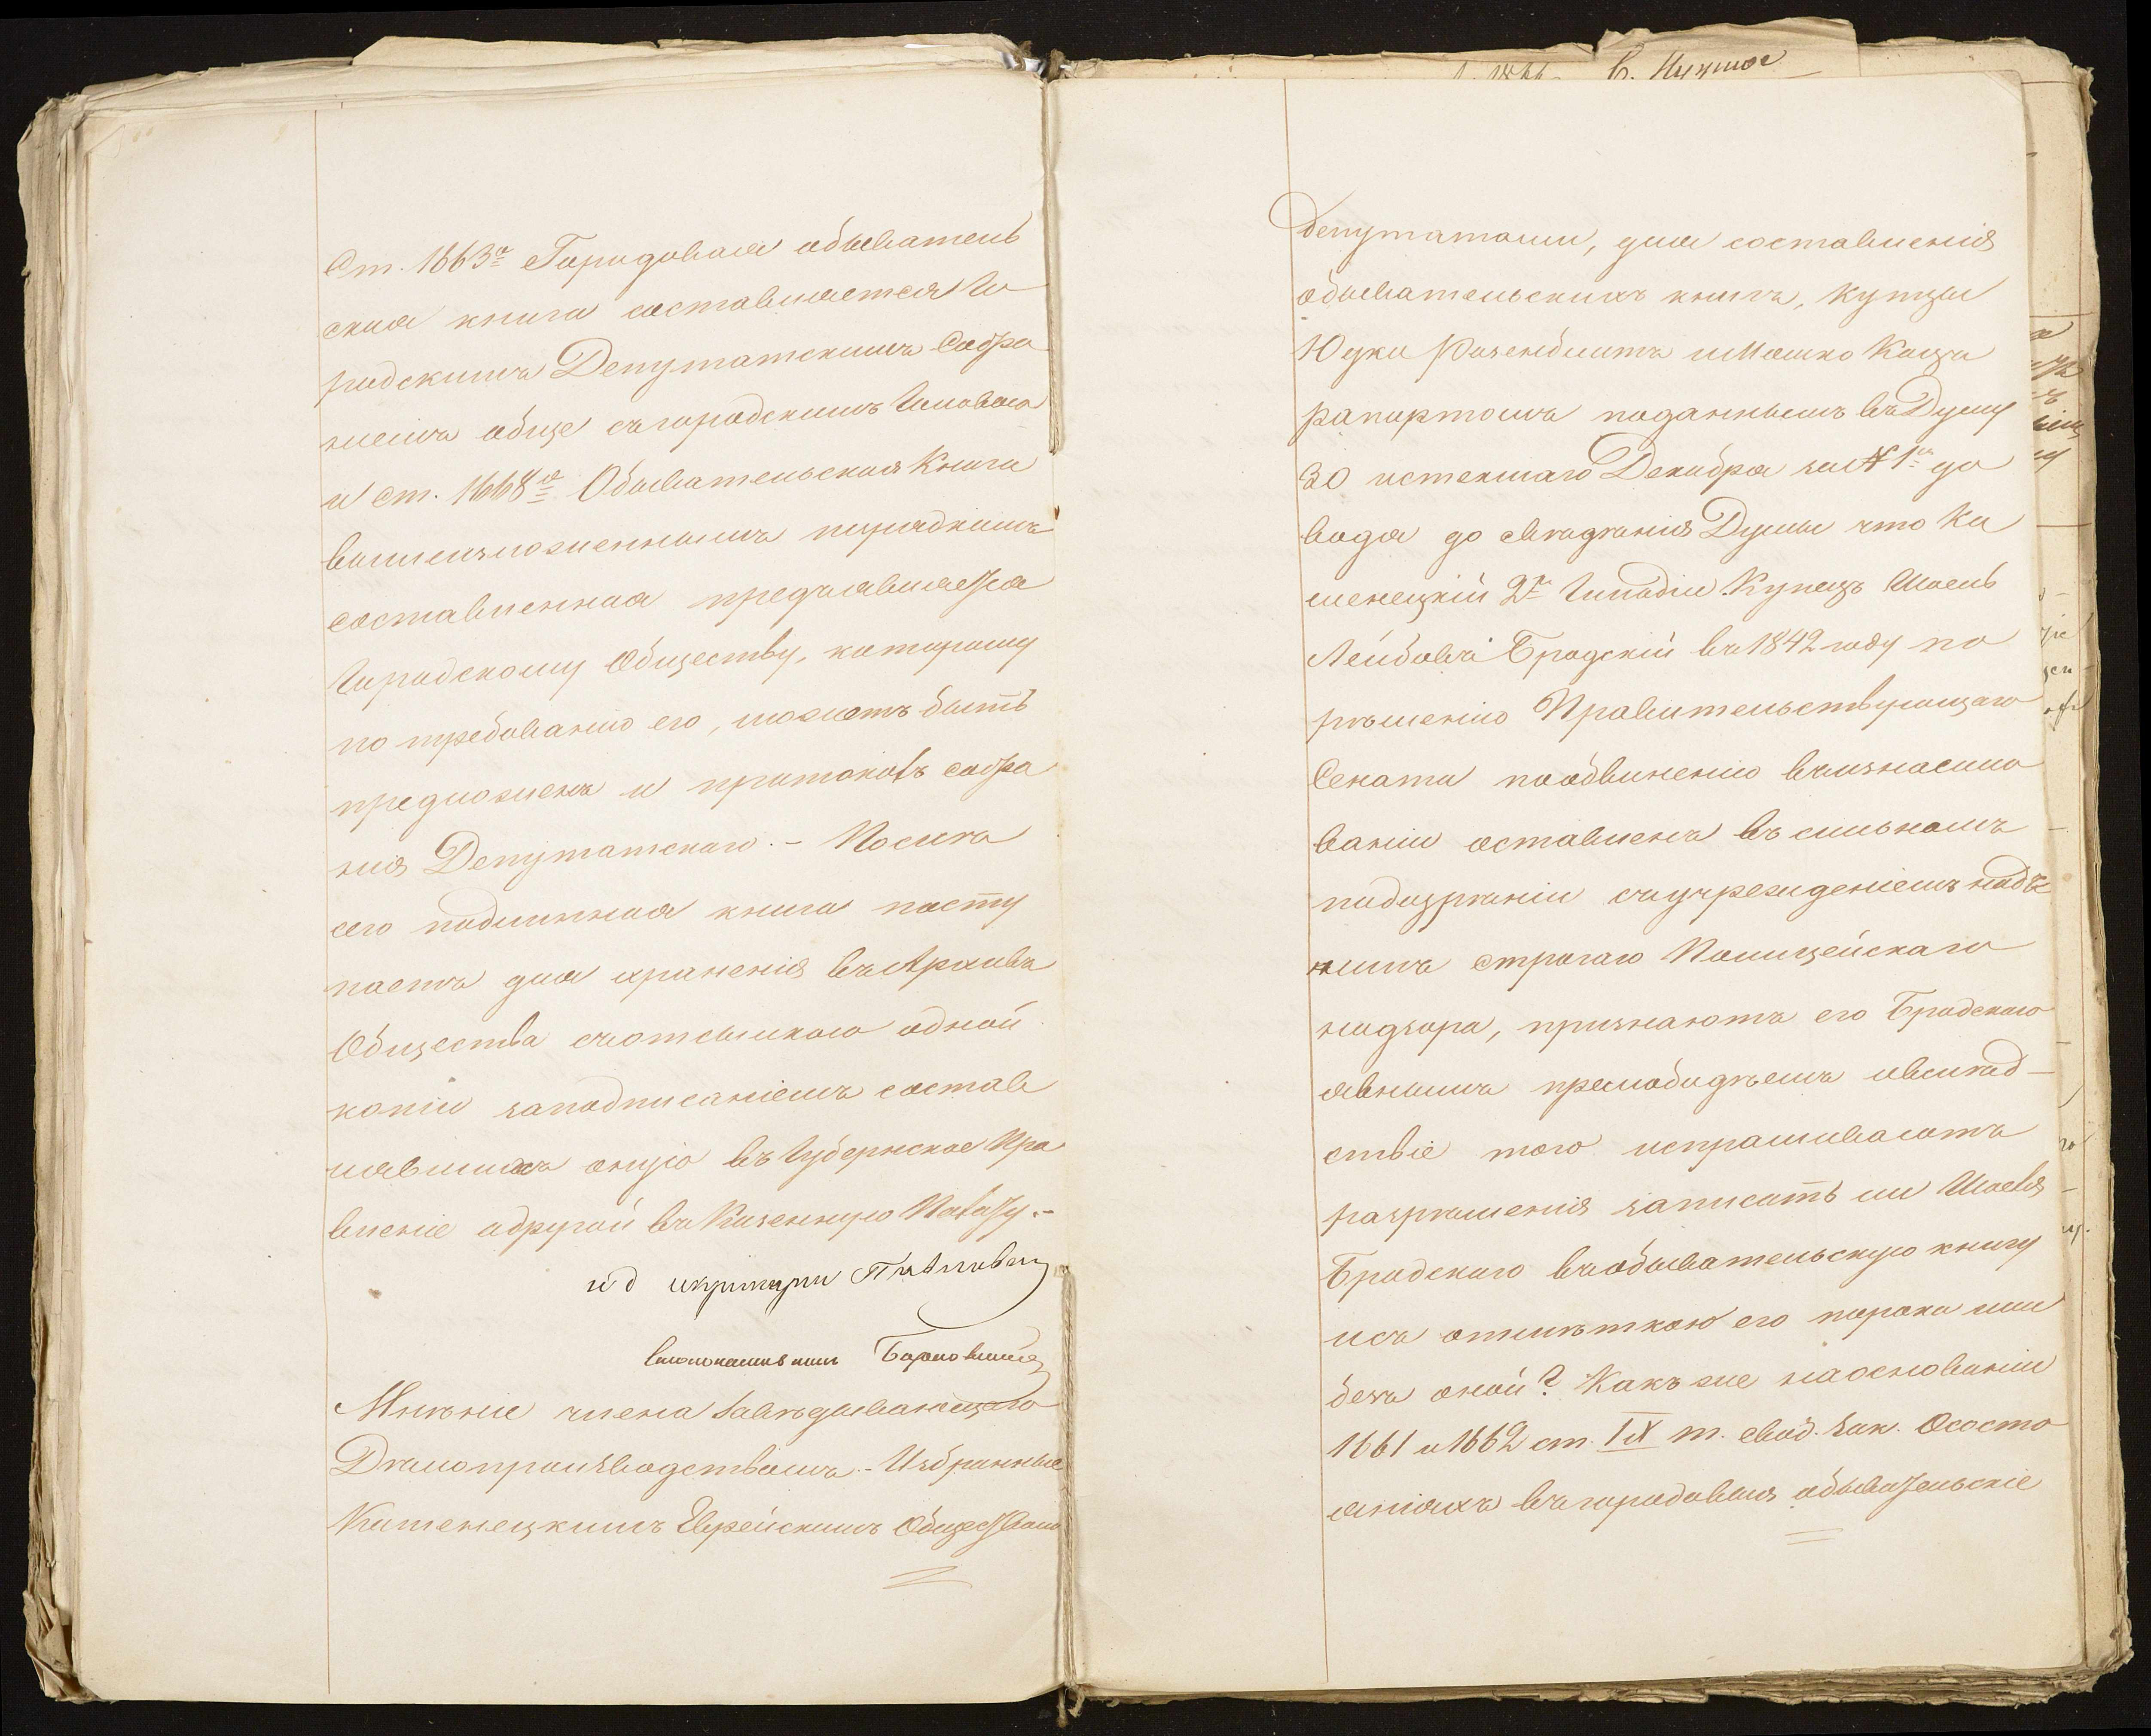 Ст. 1663я Городовая обыватель
ская книга составляется Го
родскимъ Депутатскимъ Собра
ніемъ обще съ городскимъ Головою
и ст. 1668я Обывательская Книга
вышеизложеннымъ порядкомъ
составленная предъявляется
Городскому Обществу, которому
по требованію его, можетъ быть
предложенъ и протоколъ собра
нія Депутатскаго. – После
сего подлинная книга посту
паетъ для храненія въ Архивъ
Общества съ отсылкою одной
копіи за подписаніемъ состав
лявшихъ оную въ Губернское Пра
вленіе а другой въ Казенную Палату. –
и д секретаря
Столоначальникъ
Мнѣніе члена Завѣдывающаго
Дѣлопроизводствомъ. – Избранные
Каменецкимъ Еврейскимъ Обществомъ
депутатами, для составленія
обывательскихъ книгъ, купцы
Юдка Розенблитъ и Мошко Кацъ
рапортомъ поданнымъ въ Думу
30 истекшаго Декабря за № 1м до
водя до свѣдѣнія Думы что Ка
менецкій 2й Гильдіи Купецъ Шаевъ
Лейбовъ Бродскій въ 1842 году по
рѣшенію Правительствующаго
Сената по обвиненію въ изнасило
ваніи оставленъ въ сильномъ
подозрѣніи съ учрежденіемъ надъ
нимъ строгаго Полицейскаго
надзора, признаютъ его Бродскаго
явнымъ прелюбодѣемъ и вслѣд –
ствіе того испрашиваютъ
разрѣшенія записать ли Шаевя
Бродскаго въ обывательскую книгу
и съ отмѣткою его порока или
безъ оной? Какъ же на основаніи
1661 и 1662 ст. IX т. свод. Зак. О состо
яніяхъ въ городовыя обывательскіе